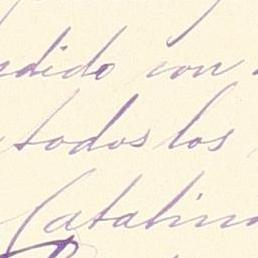 ndido con
todos los
Catalina